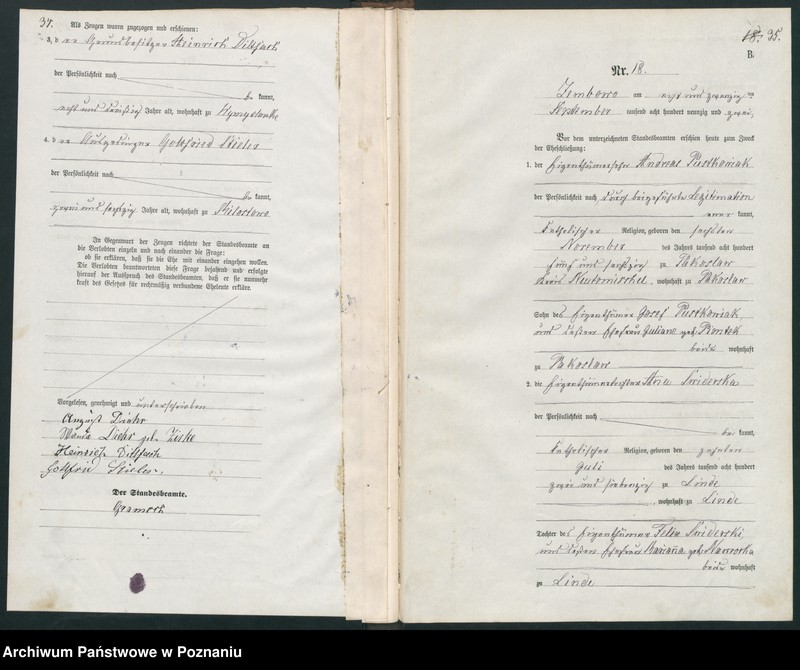 37.
Als Zeugen waren zugezogen und erschienen:
3. der Grundbesitzer Heinrich Dittfach
der Persönlichkeit nach
be kannt,
acht und dreißig Jahre alt, wohnhaft zu
4. der Ausgedinger Gottfried
der Persönlichkeit nach
be kannt,
zwei und sechzig Jahre alt, wohnhaft zu
In Gegenwart der Zeugen richtete der Standesbeamte an
die Verlobten einzeln und nach einander die Frage:
ob sie erklären, daß sie die Ehe mit einander eingehen wollen.
Die Verlobten beantworteten diese Frage bejahend und erfolgte
hierauf der Ausspruch des Standesbeamten, daß er sie nunmehr
kraft des Gesetzes für rechtmäßig verbundene Eheleute erkläre.
Vorgelesen, genehmigt und unterschrieben
August
geb.
Heinrich Dittfach
Der Standesbeamte.
35.
B.
Nr. 18.
Zembowo am acht und zwanzig ten
September tausend acht hundert neunzig und zwei,
Vor dem unterzeichneten Standesbeamten erschien heute zum Zweck
der Eheschließung:
1. der Eigenthümersohn Andreas Pustkowiak
der Persönlichkeit nach durch beigeführte Legitimation
kannt,
katholischer Religion, geboren den sechsten
November des Jahres tausend acht hundert
fünf und sechzig zu Pakoslaw
Kreis Neutomischel, wohnhaft zu Pakoslaw
Sohn des Eigenthümer Josef Pustkowiak,
und dessen Ehefrau Juliane geb.
beide wohnhaft
zu Pakoslaw
2. die Eigenthümertochter Anna Swiderska
der Persönlichkeit nach
be kannt,
katholischer Religion, geboren den zehnten
Juli des Jahres tausend acht hundert
zwei und siebenzig zu Linde
, wohnhaft zu Linde
Tochter des Eigenthümer Felix Swiderski,
und dessen Ehefrau Marianna geb.
beide wohnhaft
zu Linde
Archiwum Państwowe w Poznaniu